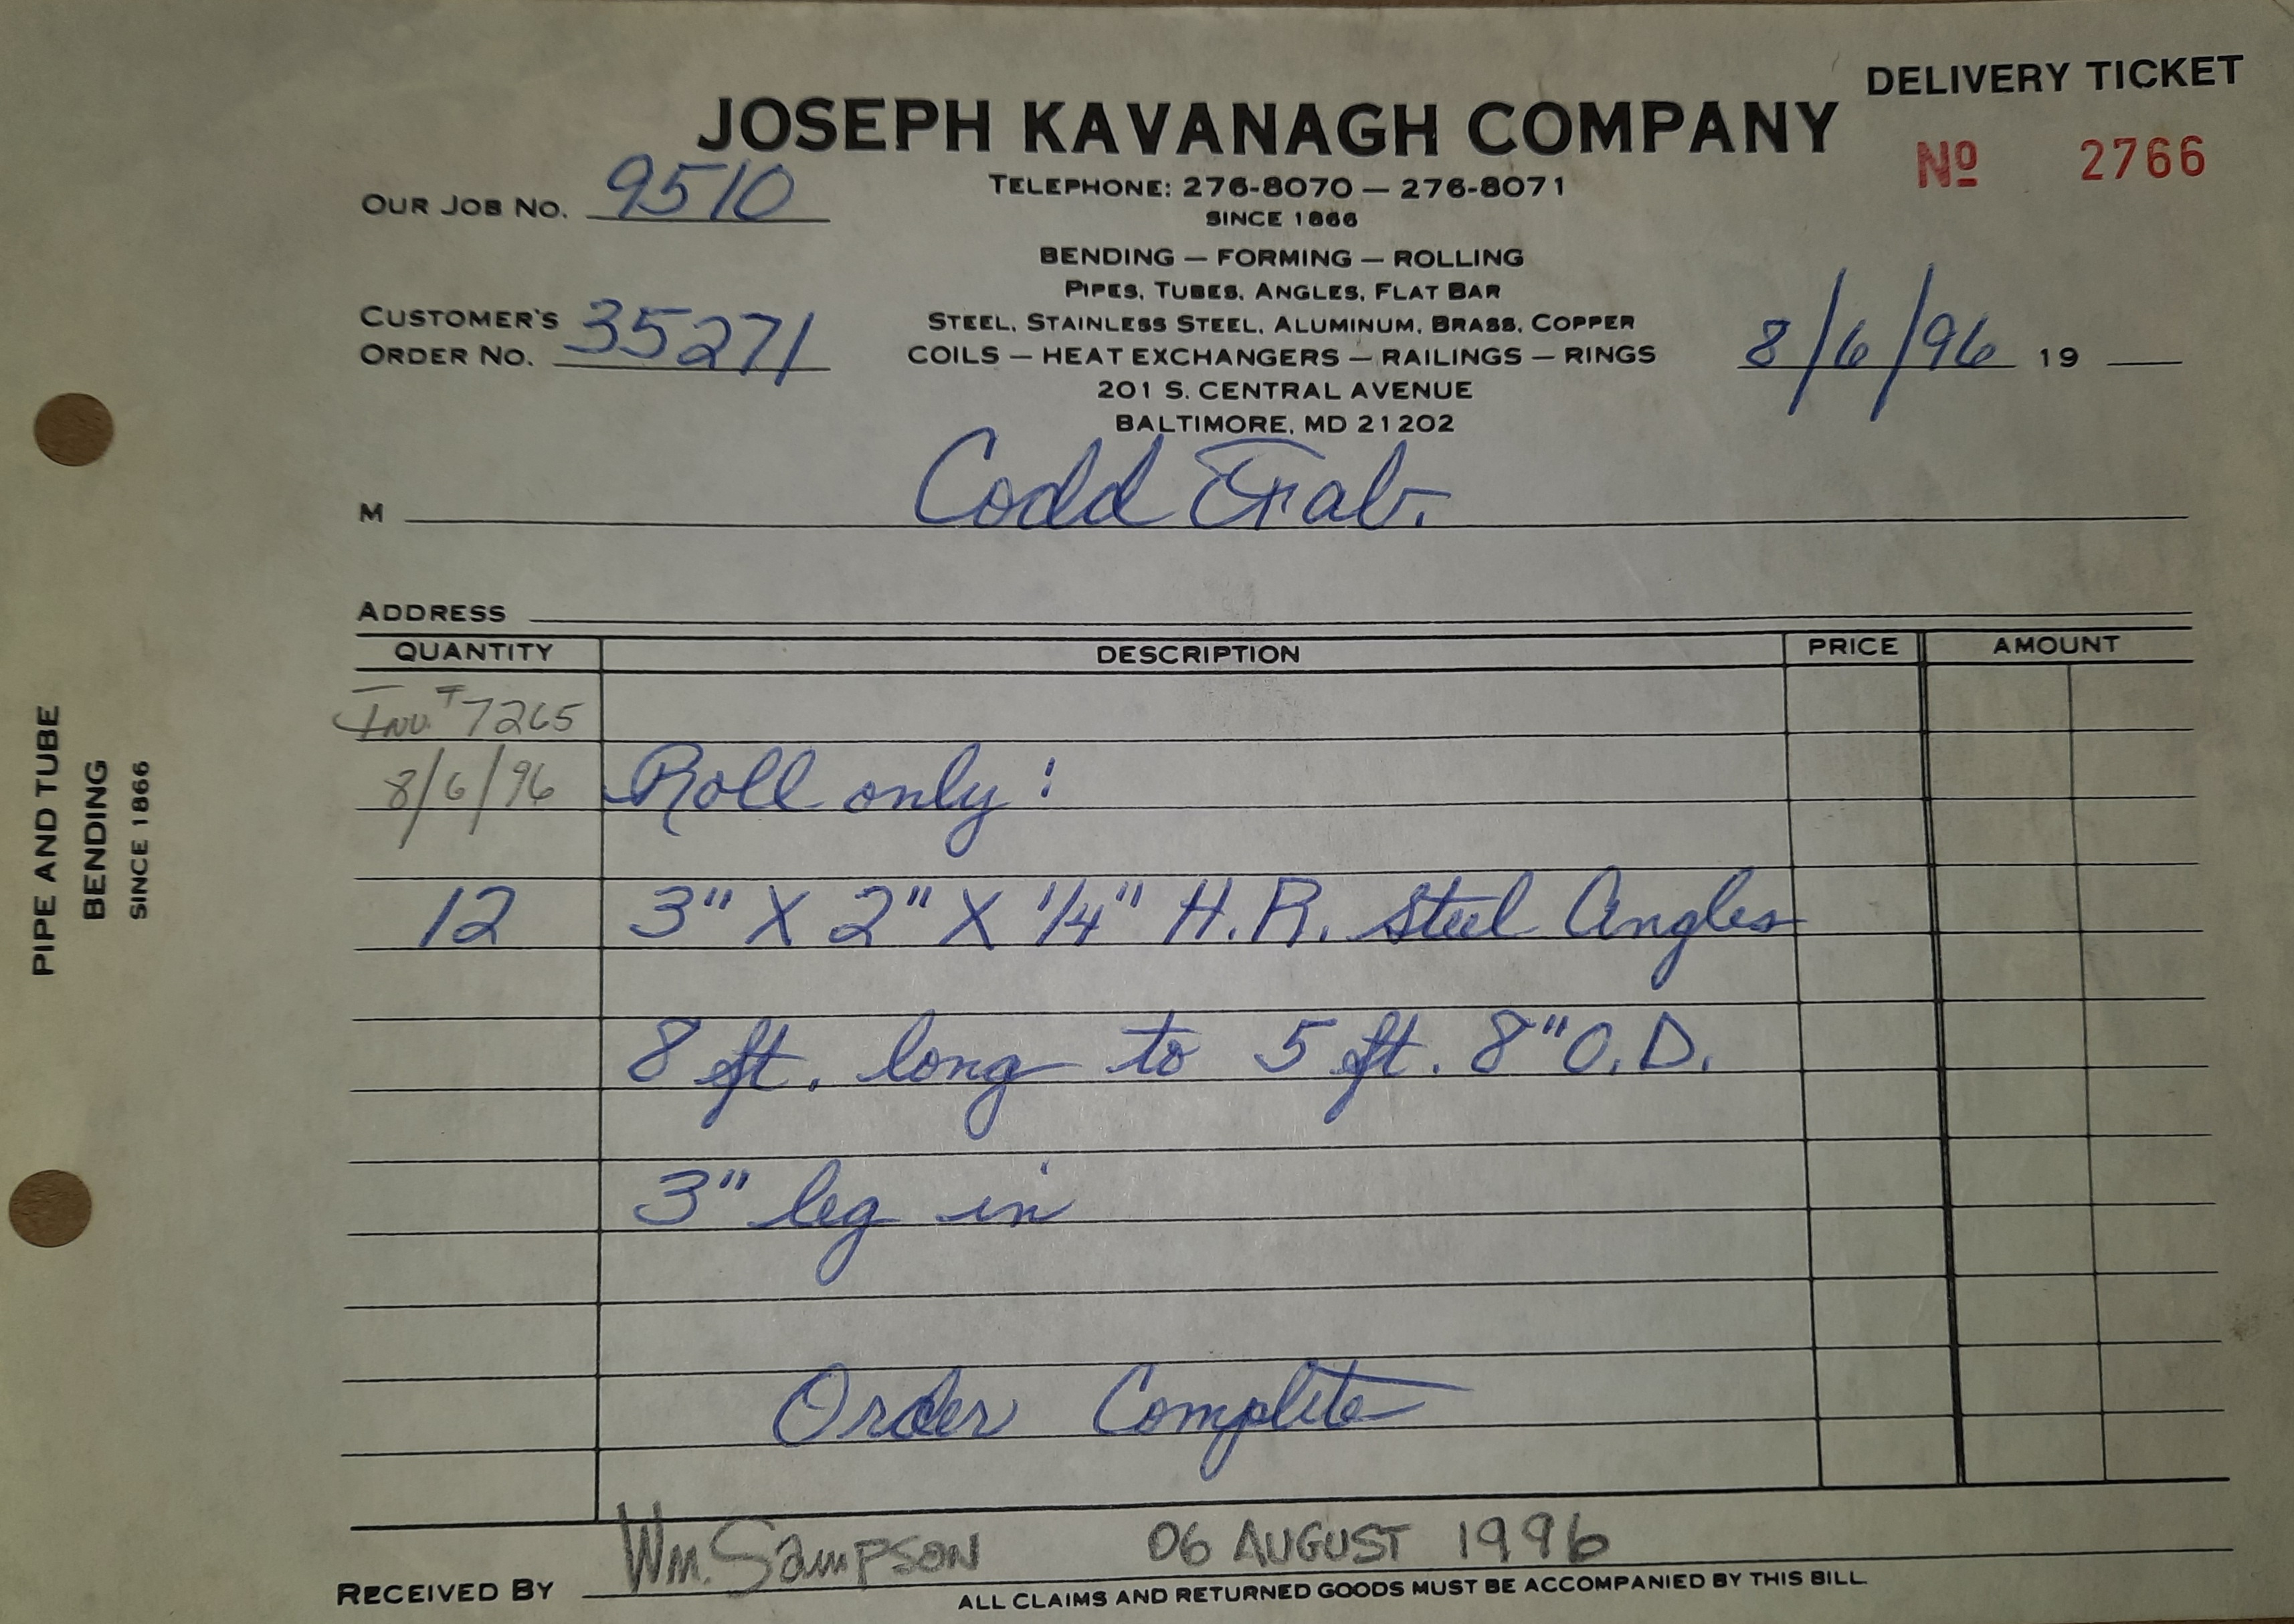 DELIVERY TICKET
JOSEPH KAVANAGH COMPANY
Nº 2766
OUR JOB NO. 9510
TELEPHONE: 276-8070 — 276-8071
SINCE 1866
BENDING — FORMING — ROLLING
PIPES, TUBES, ANGLES, FLAT BAR
CUSTOMER'S
ORDER NO. 35271
STEEL, STAINLESS STEEL, ALUMINUM, BRASS, COPPER
COILS — HEAT EXCHANGERS — RAILINGS — RINGS
8/6/96 19
201 S. CENTRAL AVENUE
BALTIMORE, MD 21202
M Codd Fab.
ADDRESS
QUANTITY DESCRIPTION PRICE AMOUNT
Inv. # 7265
8/6/96 Roll only:
12 3" X 2" X 1/4" H.R. Steel Angles
8 ft. long to 5 ft. 8" O.D.
3" leg in
Order Complete
Wm. Sampson 06 AUGUST 1996
RECEIVED BY
ALL CLAIMS AND RETURNED GOODS MUST BE ACCOMPANIED BY THIS BILL
PIPE AND TUBE
BENDING
SINCE 1866